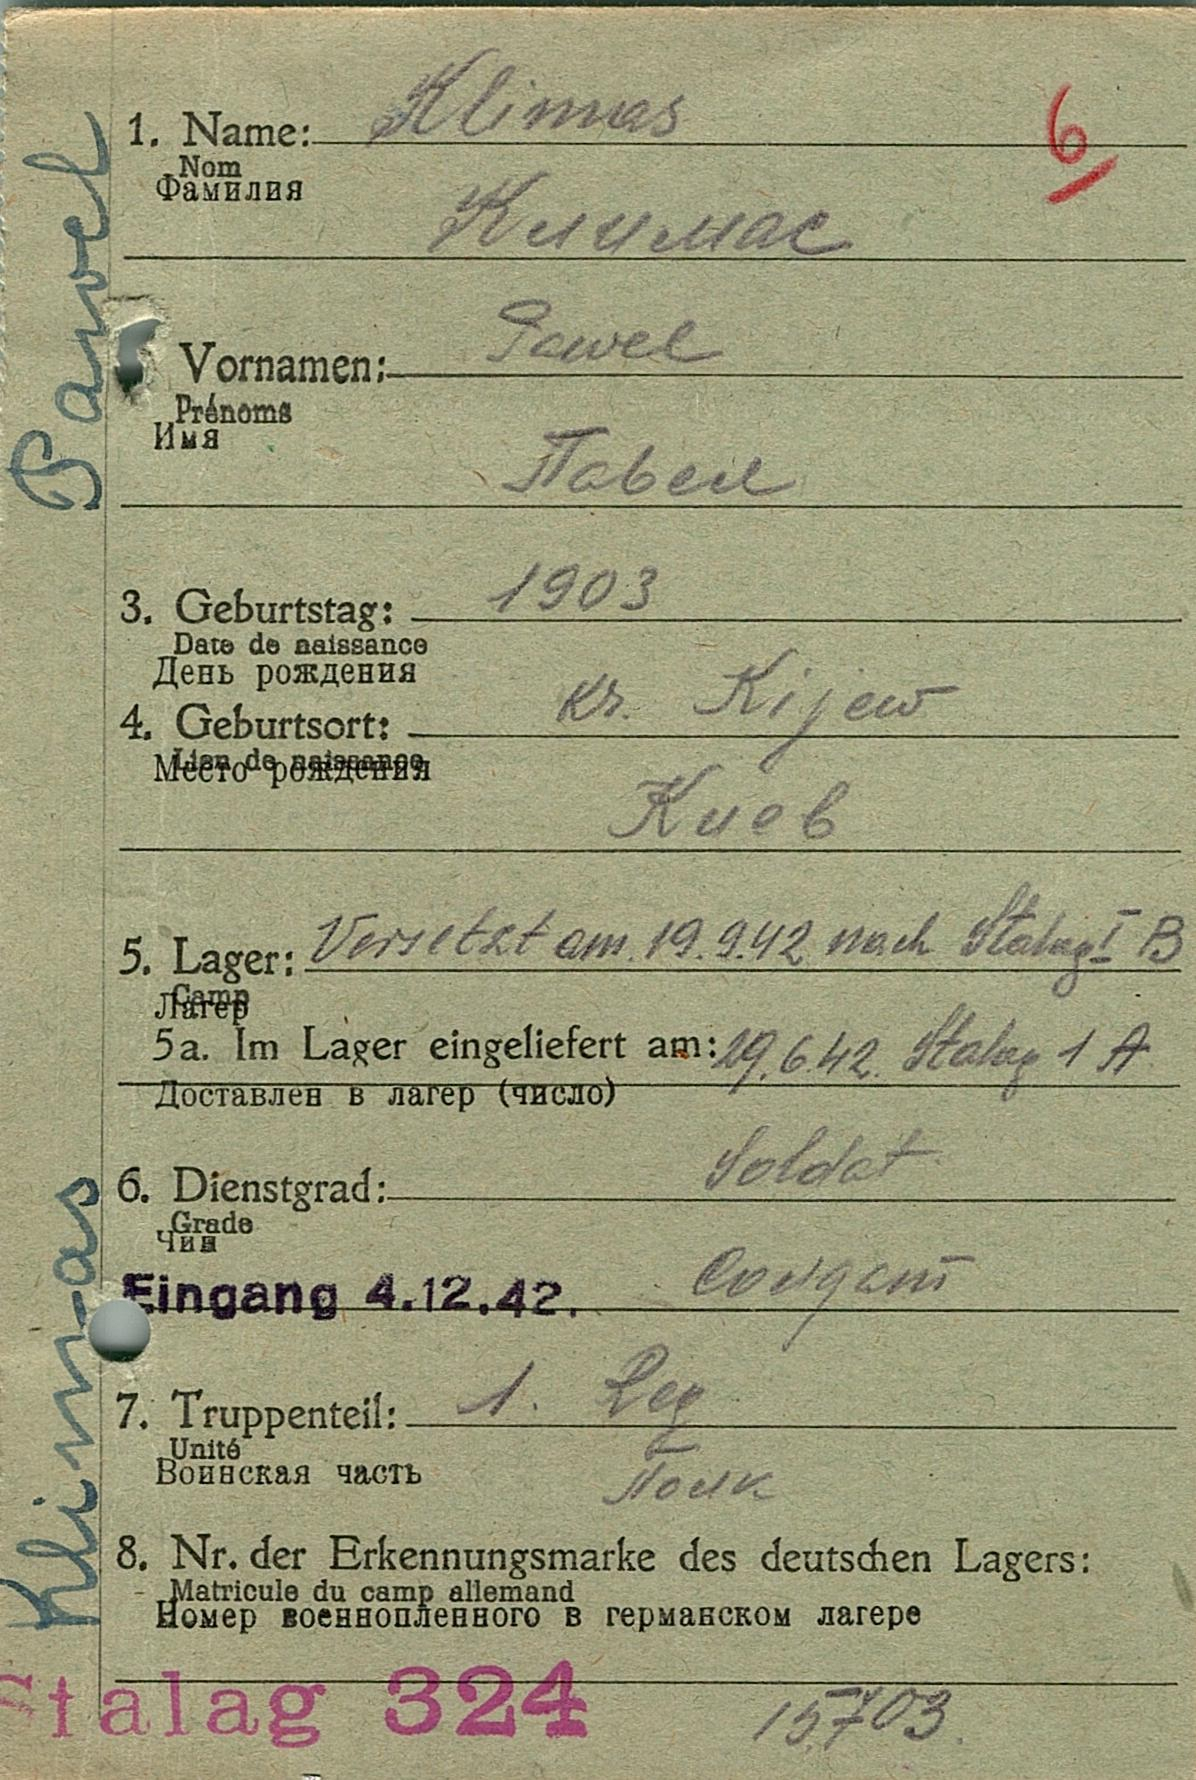 1. Name: Klimas
6
Nom
Фамилия
Климас
Vornamen: Pawel
Prénoms
Имя
Павел
3. Geburtstag: 1903
Date de naissance
День рождения
4. Geburtsort: kr. Kijew
Lieu de naissance
Место рождения
Киев
5. Lager: Versetzt am 19.9.42 nach Stalag I B
Camp
Лагер
5a. Im Lager eingeliefert am: 29.6.42. Stalag 1 A
Доставлен в лагер (число)
6. Dienstgrad: Soldat
Grade
Чин
Солдат
Eingang 4.12.42.
7. Truppenteil: 1. Reg
Unité
Воинская часть
Полк
8. Nr. der Erkennungsmarke des deutschen Lagers:
Matricule du camp allemand
Номер военнопленного в германском лагере
Stalag 324
15703.
Klimas
Pawel